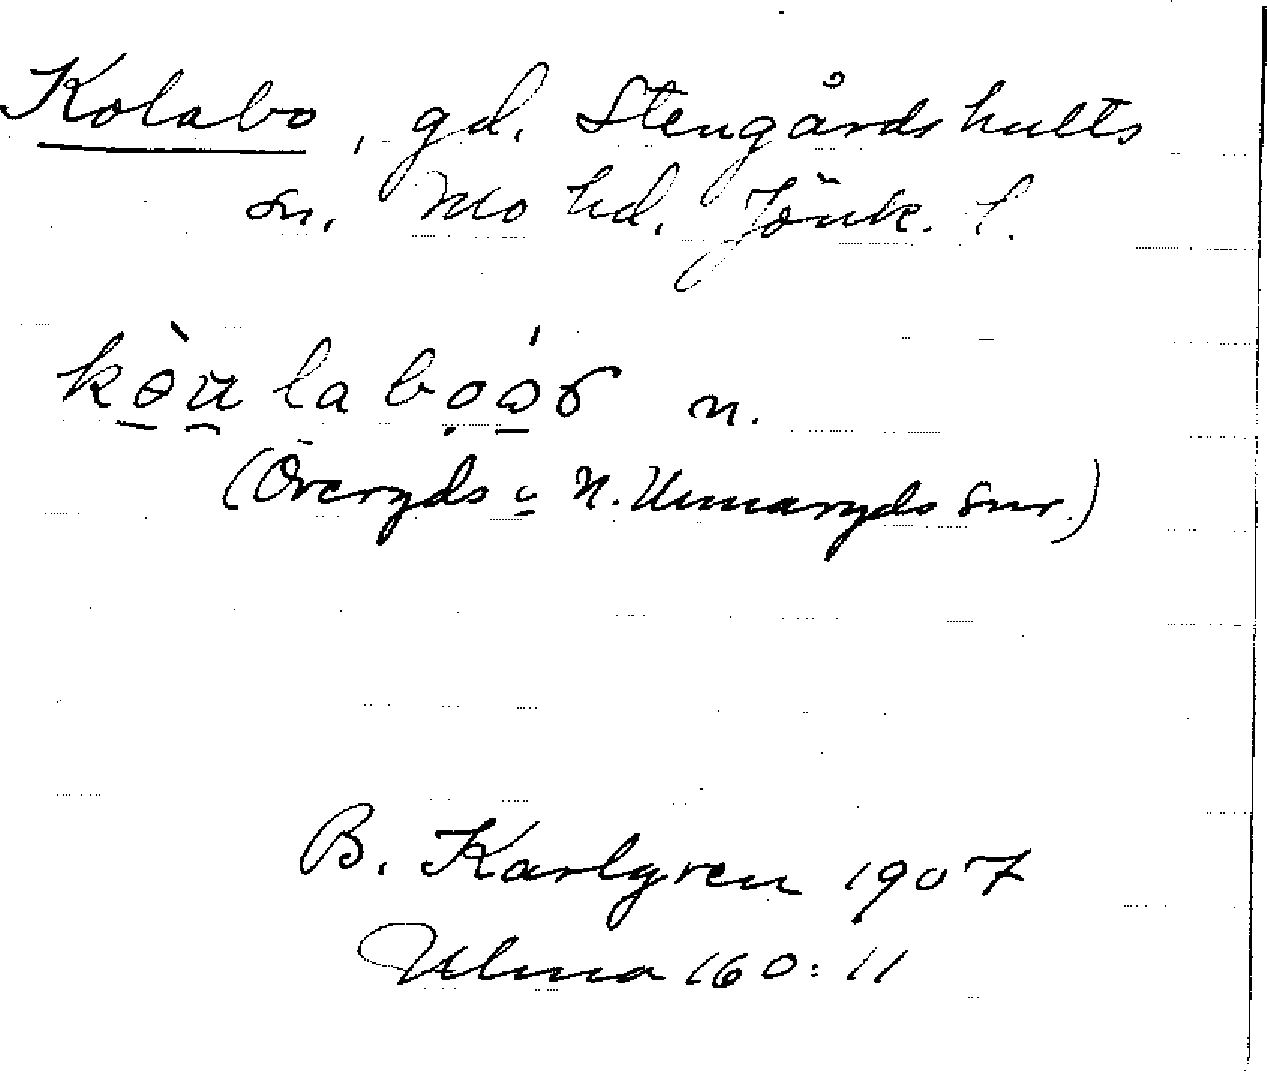 Kolabo, gd. Stengårdshults
sn. Mo hd. Jönk. l.
n.
(Överyds o N. Unnaryds snr.)
B. Karlgren 1907
Ulma 160:11